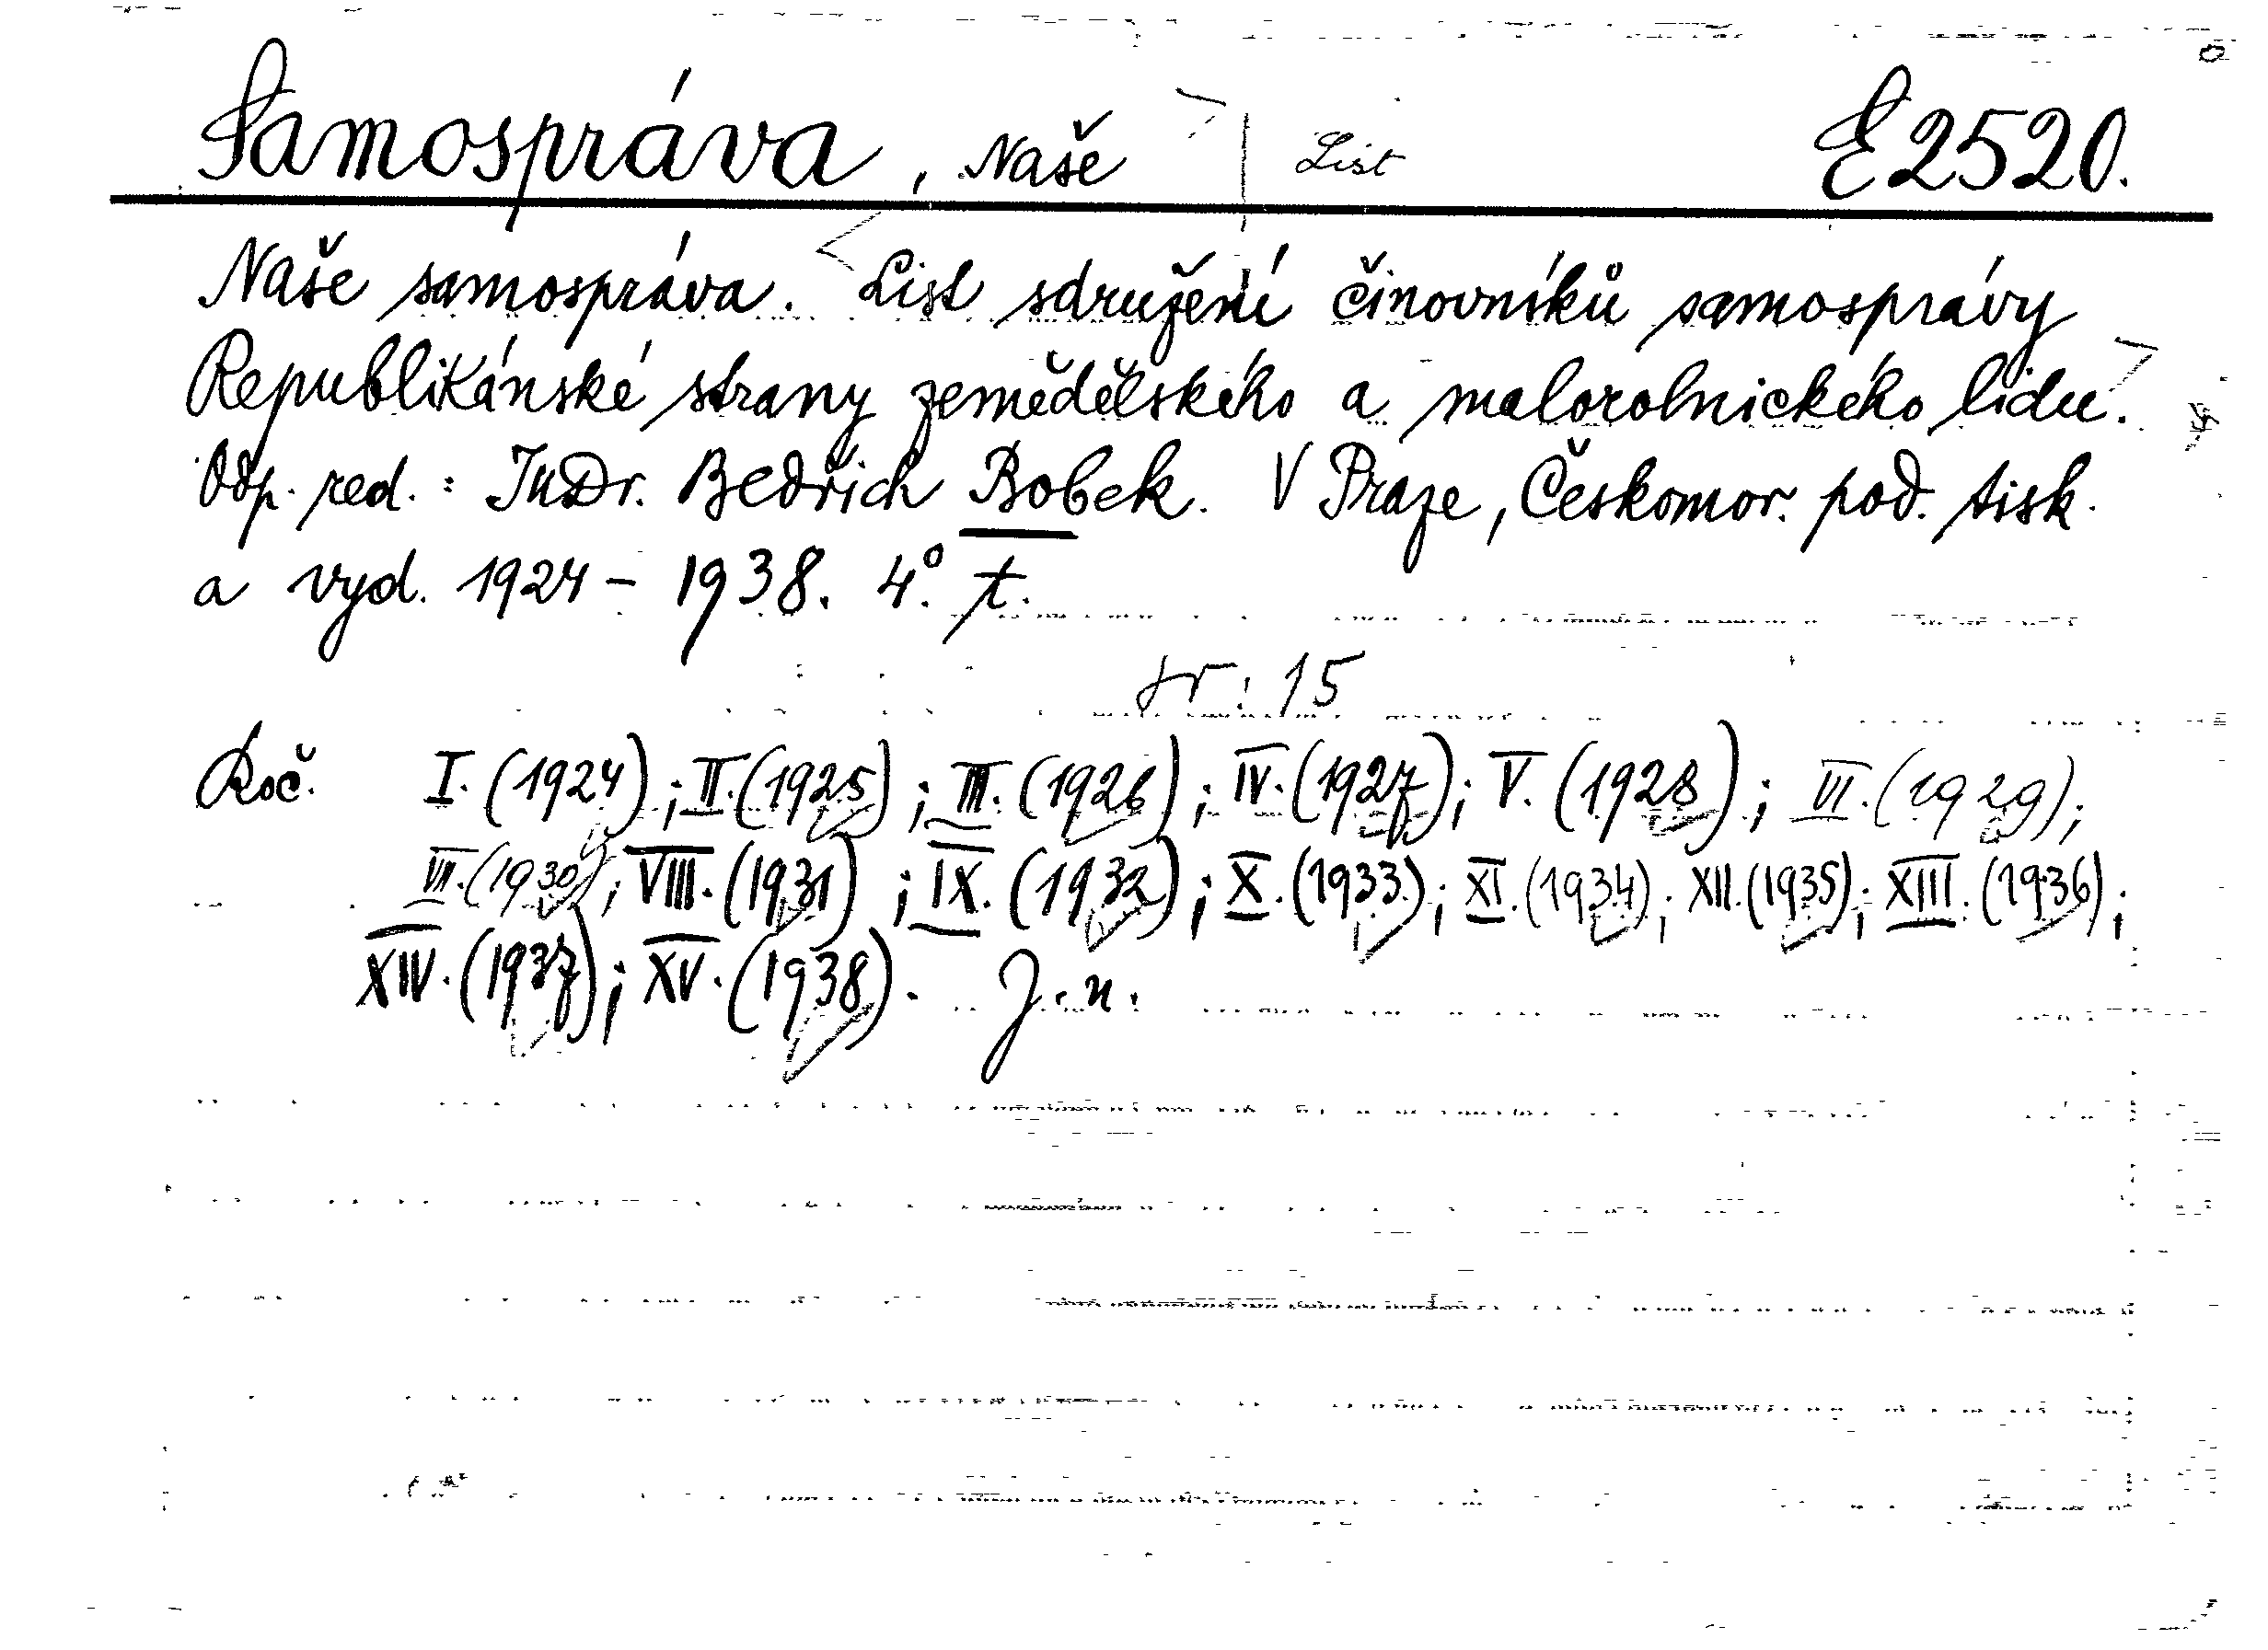 Samospráva, Naše | List E 2520.
Naše samospráva. List sdružení činovníků samosprávy
Republikánské strany zemědělského a malorolnického lidu.
Odp. red.: JuDr. Bedřich Bobek. V Praze, Českomor. pod. tisk.
a vyd. 1924 – 1938. 4°. t.
15
Roč. I. (1924); II. (1925); III. (1926); IV. (1927); V. (1928); VI. (1929);
VII. (1930); VIII. (1931); IX. (1932); X. (1933); XI. (1934); XII. (1935); XIII. (1936);
XIV. (1937); XV. (1938). J. n.